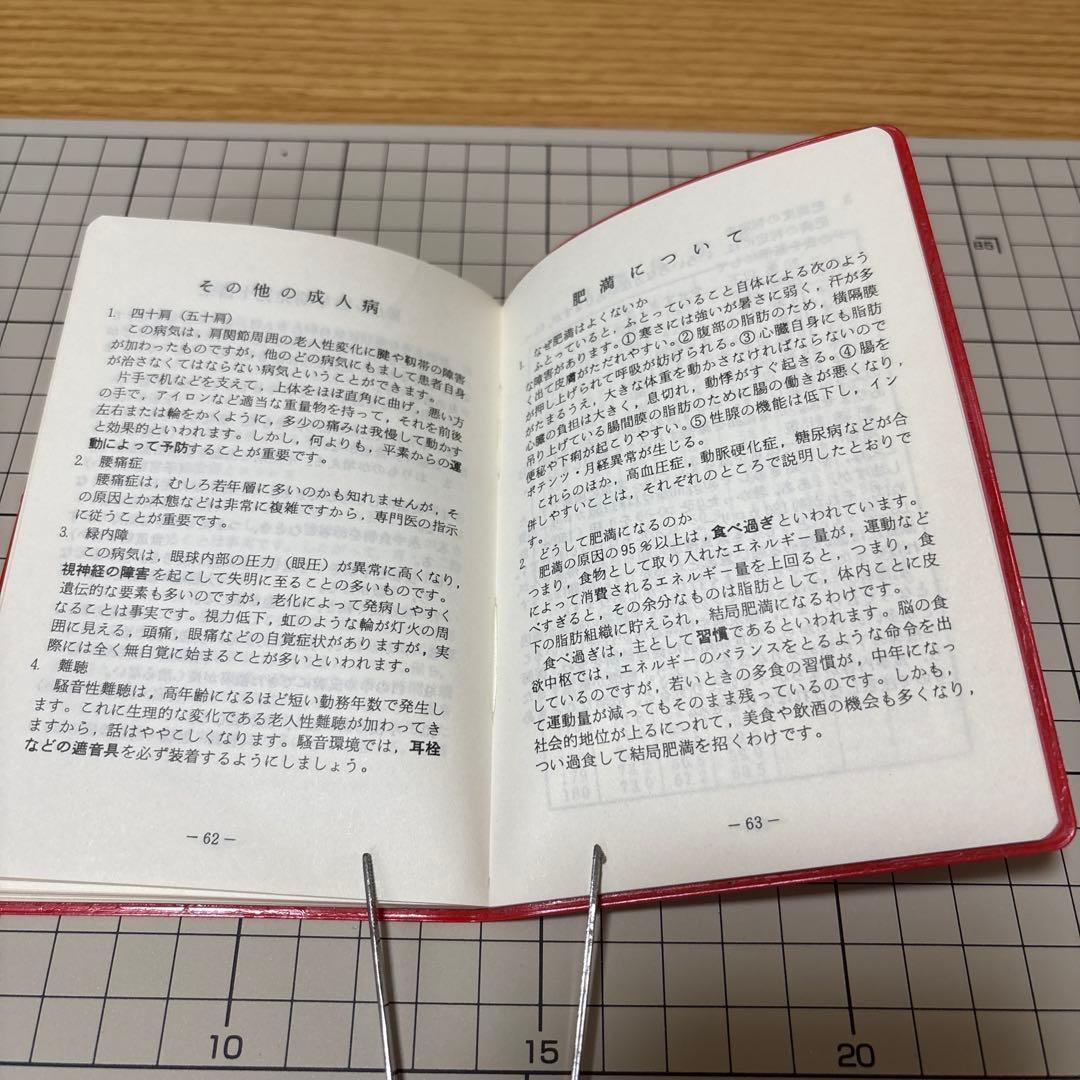 その他の成人病
1. 四十肩（五十肩）
この病気は，肩関節周囲の老人性変化に腱や靱帯の障害
が加わったものですが，他のどの病気にもまして患者自身
が治さなくてはならない病気ということができます。
片手で机などを支えて，上体をほぼ直角に曲げ，悪い方
の手で，アイロンなど適当な重量物を持って，それを前後
左右または輪をかくように，多少の痛みは我慢して動かす
と効果的といわれます。しかし，何よりも，平素からの運
動によって予防することが重要です。
2. 腰痛症
腰痛症は，むしろ若年層に多いのかも知れませんが，そ
の原因とか本態などは非常に複雑ですから，専門医の指示
に従うことが重要です。
3. 緑内障
この病気は，眼球内部の圧力（眼圧）が異常に高くなり，
視神経の障害を起こして失明に至ることの多いものです。
遺伝的な要素も多いのですが，老化によって発病しやすく
なることは事実です。視力低下，虹のような輪が灯火の周
囲に見える，頭痛，眼痛などの自覚症状がありますが，実
際には全く無自覚に始まることが多いといわれます。
4. 難聴
騒音性難聴は，高年齢になるほど短い勤務年数で発生し
ます。これに生理的な変化である老人性難聴が加わってき
ますから，話はややこしくなります。騒音環境では，耳栓
などの遮音具を必ず装着するようにしましょう。
－62－
肥満について
1. なぜ肥満はよくないか
ふとっていると，ふとっていること自体による次のよう
な障害があります。①寒さには強いが暑さに弱く，汗が多
く出て皮膚がただれやすい。②腹部の脂肪のため，横隔膜
が押し上げられて呼吸が妨げられる。③心臓自身にも脂肪
がたまるうえ，大きな体重を動かさなければならないので
心臓の負担は大きく，息切れ，動悸がすぐ起きる。④腸を
吊り上げている腸間膜の脂肪のために腸の働きが悪くなり，
便秘や下痢が起こりやすい。⑤性腺の機能は低下し，イン
ポテンツ・月経異常が生じる。
これらのほか，高血圧症，動脈硬化症，糖尿病などが合
併しやすいことは，それぞれのところで説明したとおりで
す。
2. どうして肥満になるのか
肥満の原因の95％以上は，食べ過ぎといわれています。
つまり，食物として取り入れたエネルギー量が，運動など
によって消費されるエネルギー量を上回ると，つまり，食
べすぎると，その余分なものは脂肪として，体内ことに皮
下の脂肪組織に貯えられ，結局肥満になるわけです。
食べ過ぎは，主として習慣であるといわれます。脳の食
欲中枢では，エネルギーのバランスをとるような命令を出
しているのですが，若いときの多食の習慣が，中年になっ
て運動量が減ってもそのまま残っているのです。しかも，
社会的地位が上るにつれて，美食や飲酒の機会も多くなり，
つい過食して結局肥満を招くわけです。
－63－
85
10
15
20